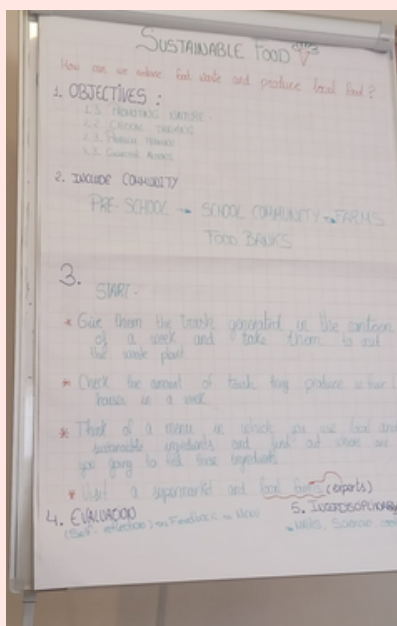 SUSTAINABLE FOOD
How can we reduce food waste and produce local food?
1. OBJECTIVES:
2. INCLUDE COMMUNITY
PRE-SCHOOL → SCHOOL COMMUNITY → FARMS
FOOD BANKS
3.
START-
* Give them the trash generated in the canteen
of a week and take them to
the waste plant
* Check the amount of trash they produce in their
houses in a week.
* Think of a menu in which you use local and
sustainable ingredients and find out where are
you going to find those ingredients
* Visit a supermarket and local farms (experts)
4. EVALUACION
5. INTERDISCIPLINARY
(Self-reflection) Feedback